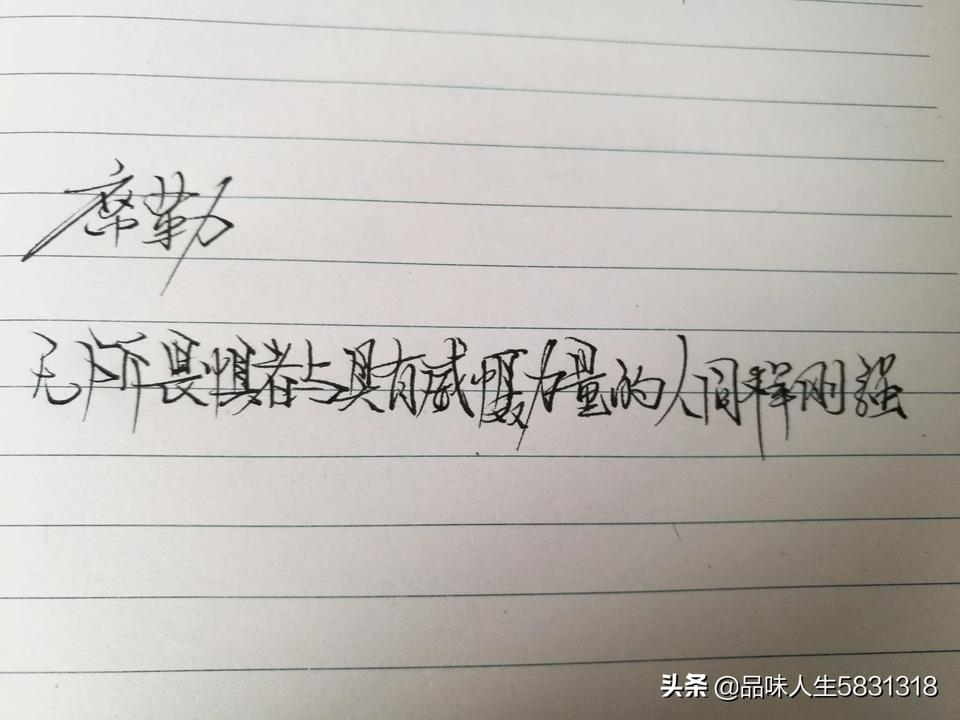 席勒
无所畏惧者与具有威慑力量的人同样刚强
头条 @品味人生5831318